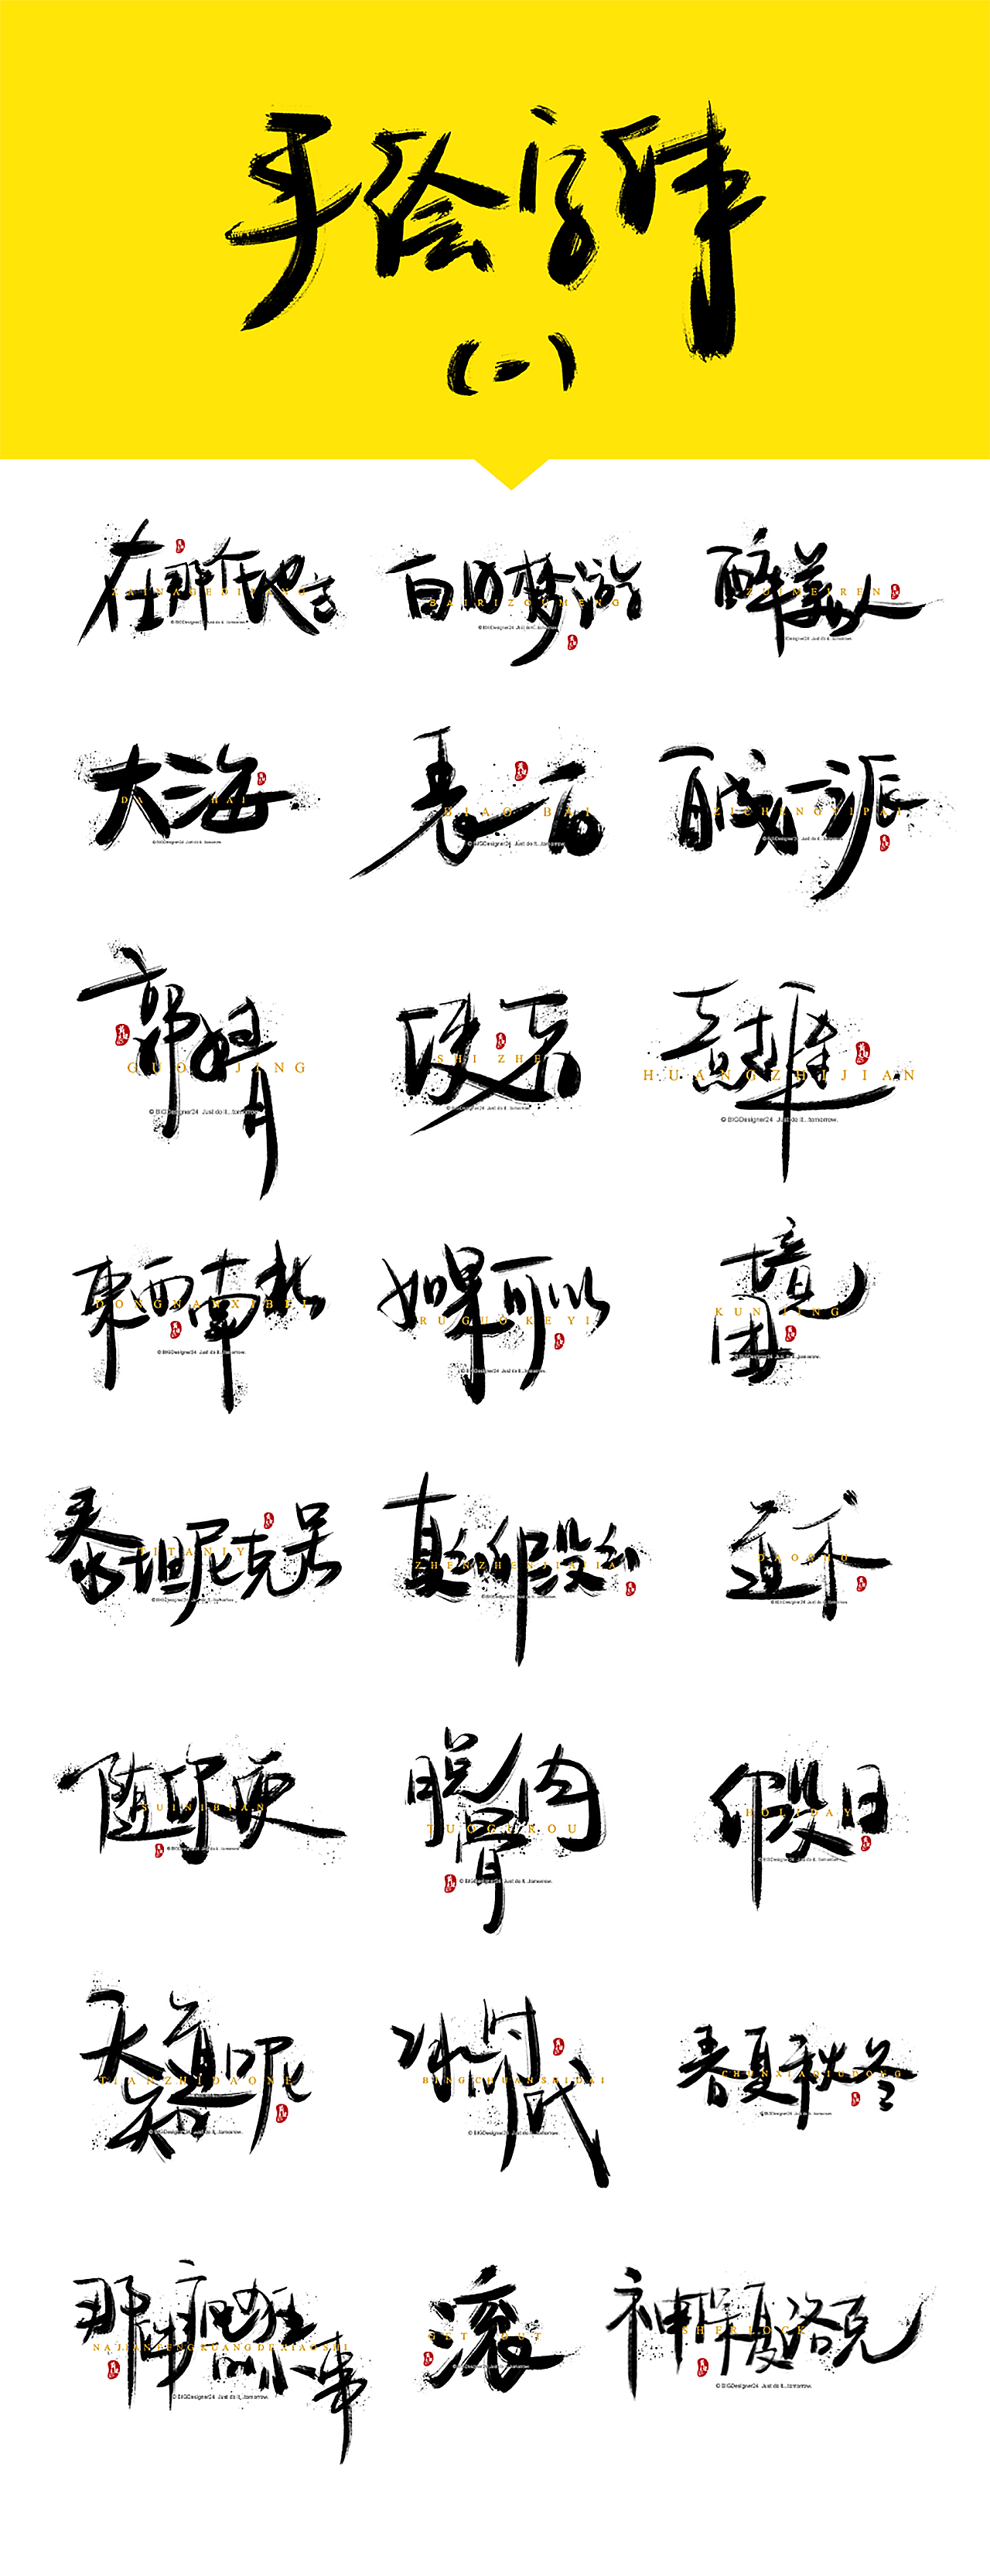 手绘字体
(一)
在那个地方
ZAINAGEDIFANG
© BIGDesigner24 Just do it...tomorrow.
白日梦游
BAIRIZOUMENG
© BIGDesigner24 Just do it...tomorrow.
醉美人
ZUIMEIREN
© BIGDesigner24 Just do it...tomorrow.
大海
DA HAI
© BIGDesigner24 Just do it...tomorrow.
表白
BIAO BAI
© BIGDesigner24 Just do it...tomorrow.
自成一派
ZICHENGYIPAI
© BIGDesigner24 Just do it...tomorrow.
郭婧
GUO JING
© BIGDesigner24 Just do it...tomorrow.
使者
SHI ZHE
© BIGDesigner24 Just do it...tomorrow.
HUANGZHIJIAN
© BIGDesigner24 Just do it...tomorrow.
東西南北
DONGNANXIBEI
© BIGDesigner24 Just do it...tomorrow.
如果可以
RUGUOKEYI
© BIGDesigner24 Just do it...tomorrow.
困境
KUN JING
© BIGDesigner24 Just do it...tomorrow.
泰坦尼克号
TITANIY
© BIGDesigner24 Just do it...tomorrow.
真真假假
ZHENZHENJIAJIA
© BIGDesigner24 Just do it...tomorrow.
© BIGDesigner24 Just do it...tomorrow.
随你便
SUINIBIAN
© BIGDesigner24 Just do it...tomorrow.
脱骨肉
TUOGUROU
© BIGDesigner24 Just do it...tomorrow.
假日
HOLIDAY
© BIGDesigner24 Just do it...tomorrow.
天知道呢
TIANZHIDAONE
© BIGDesigner24 Just do it...tomorrow.
冰川时代
BINGCHUANSHIDAI
© BIGDesigner24 Just do it...tomorrow.
春夏秋冬
CHUNXIAQIUDONG
© BIGDesigner24 Just do it...tomorrow.
那件疯狂的小事
NAJIANFENGKUANGDEXIAOSHI
© BIGDesigner24 Just do it...tomorrow.
滚
GET OUT
© BIGDesigner24 Just do it...tomorrow.
神探夏洛克
SHERLOCK
© BIGDesigner24 Just do it...tomorrow.